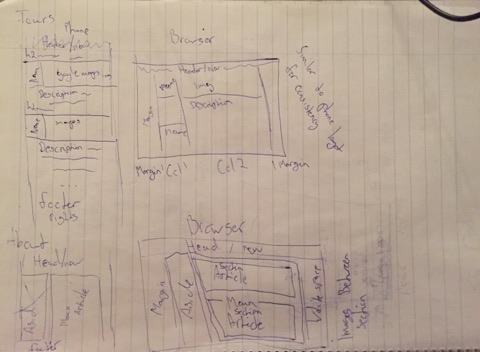 Tours
Phone
Header/Nav
Name
google maps
Description
Name
images
Description
Footer
rights
Browser
Header/Nav
Img
Description
Margin
Name
Margin
Col 1
Col 2
Margin
Similar to phone
for consistency
About
Head/nav
Aside
Main
Article
Footer
Browser
Head / nav
Margin
Aside
Section
Article
Section
Article
White space
Images Between
Section